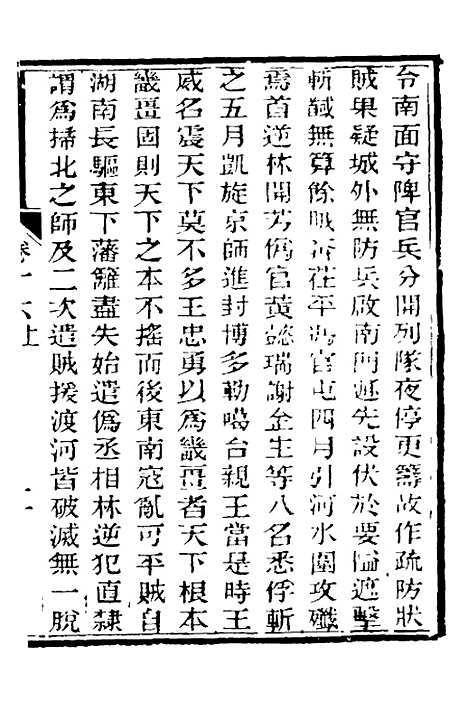 令南面守陴官兵分開列隊夜停更籌故作疏防狀
賊果疑城外無防兵啟南門遁先設伏於要隘遮擊
斬馘無算餘賊奔茌平馮官屯四月引河水圍攻殲
焉首逆林開芳僞官黄懿瑞謝金生等八名悉俘斬
之五月凱旋京師進封博多勒噶台親王當是時王
威名震天下莫不多王忠勇以爲畿畺者天下根本
畿畺固則天下之本不搖而後東南寇亂可平賊自
湖南長驅東下藩籬盡失始遣僞丞相林逆犯直隸
謂爲掃北之師及二次遣賊援渡河皆破滅無一脫
卷十六上